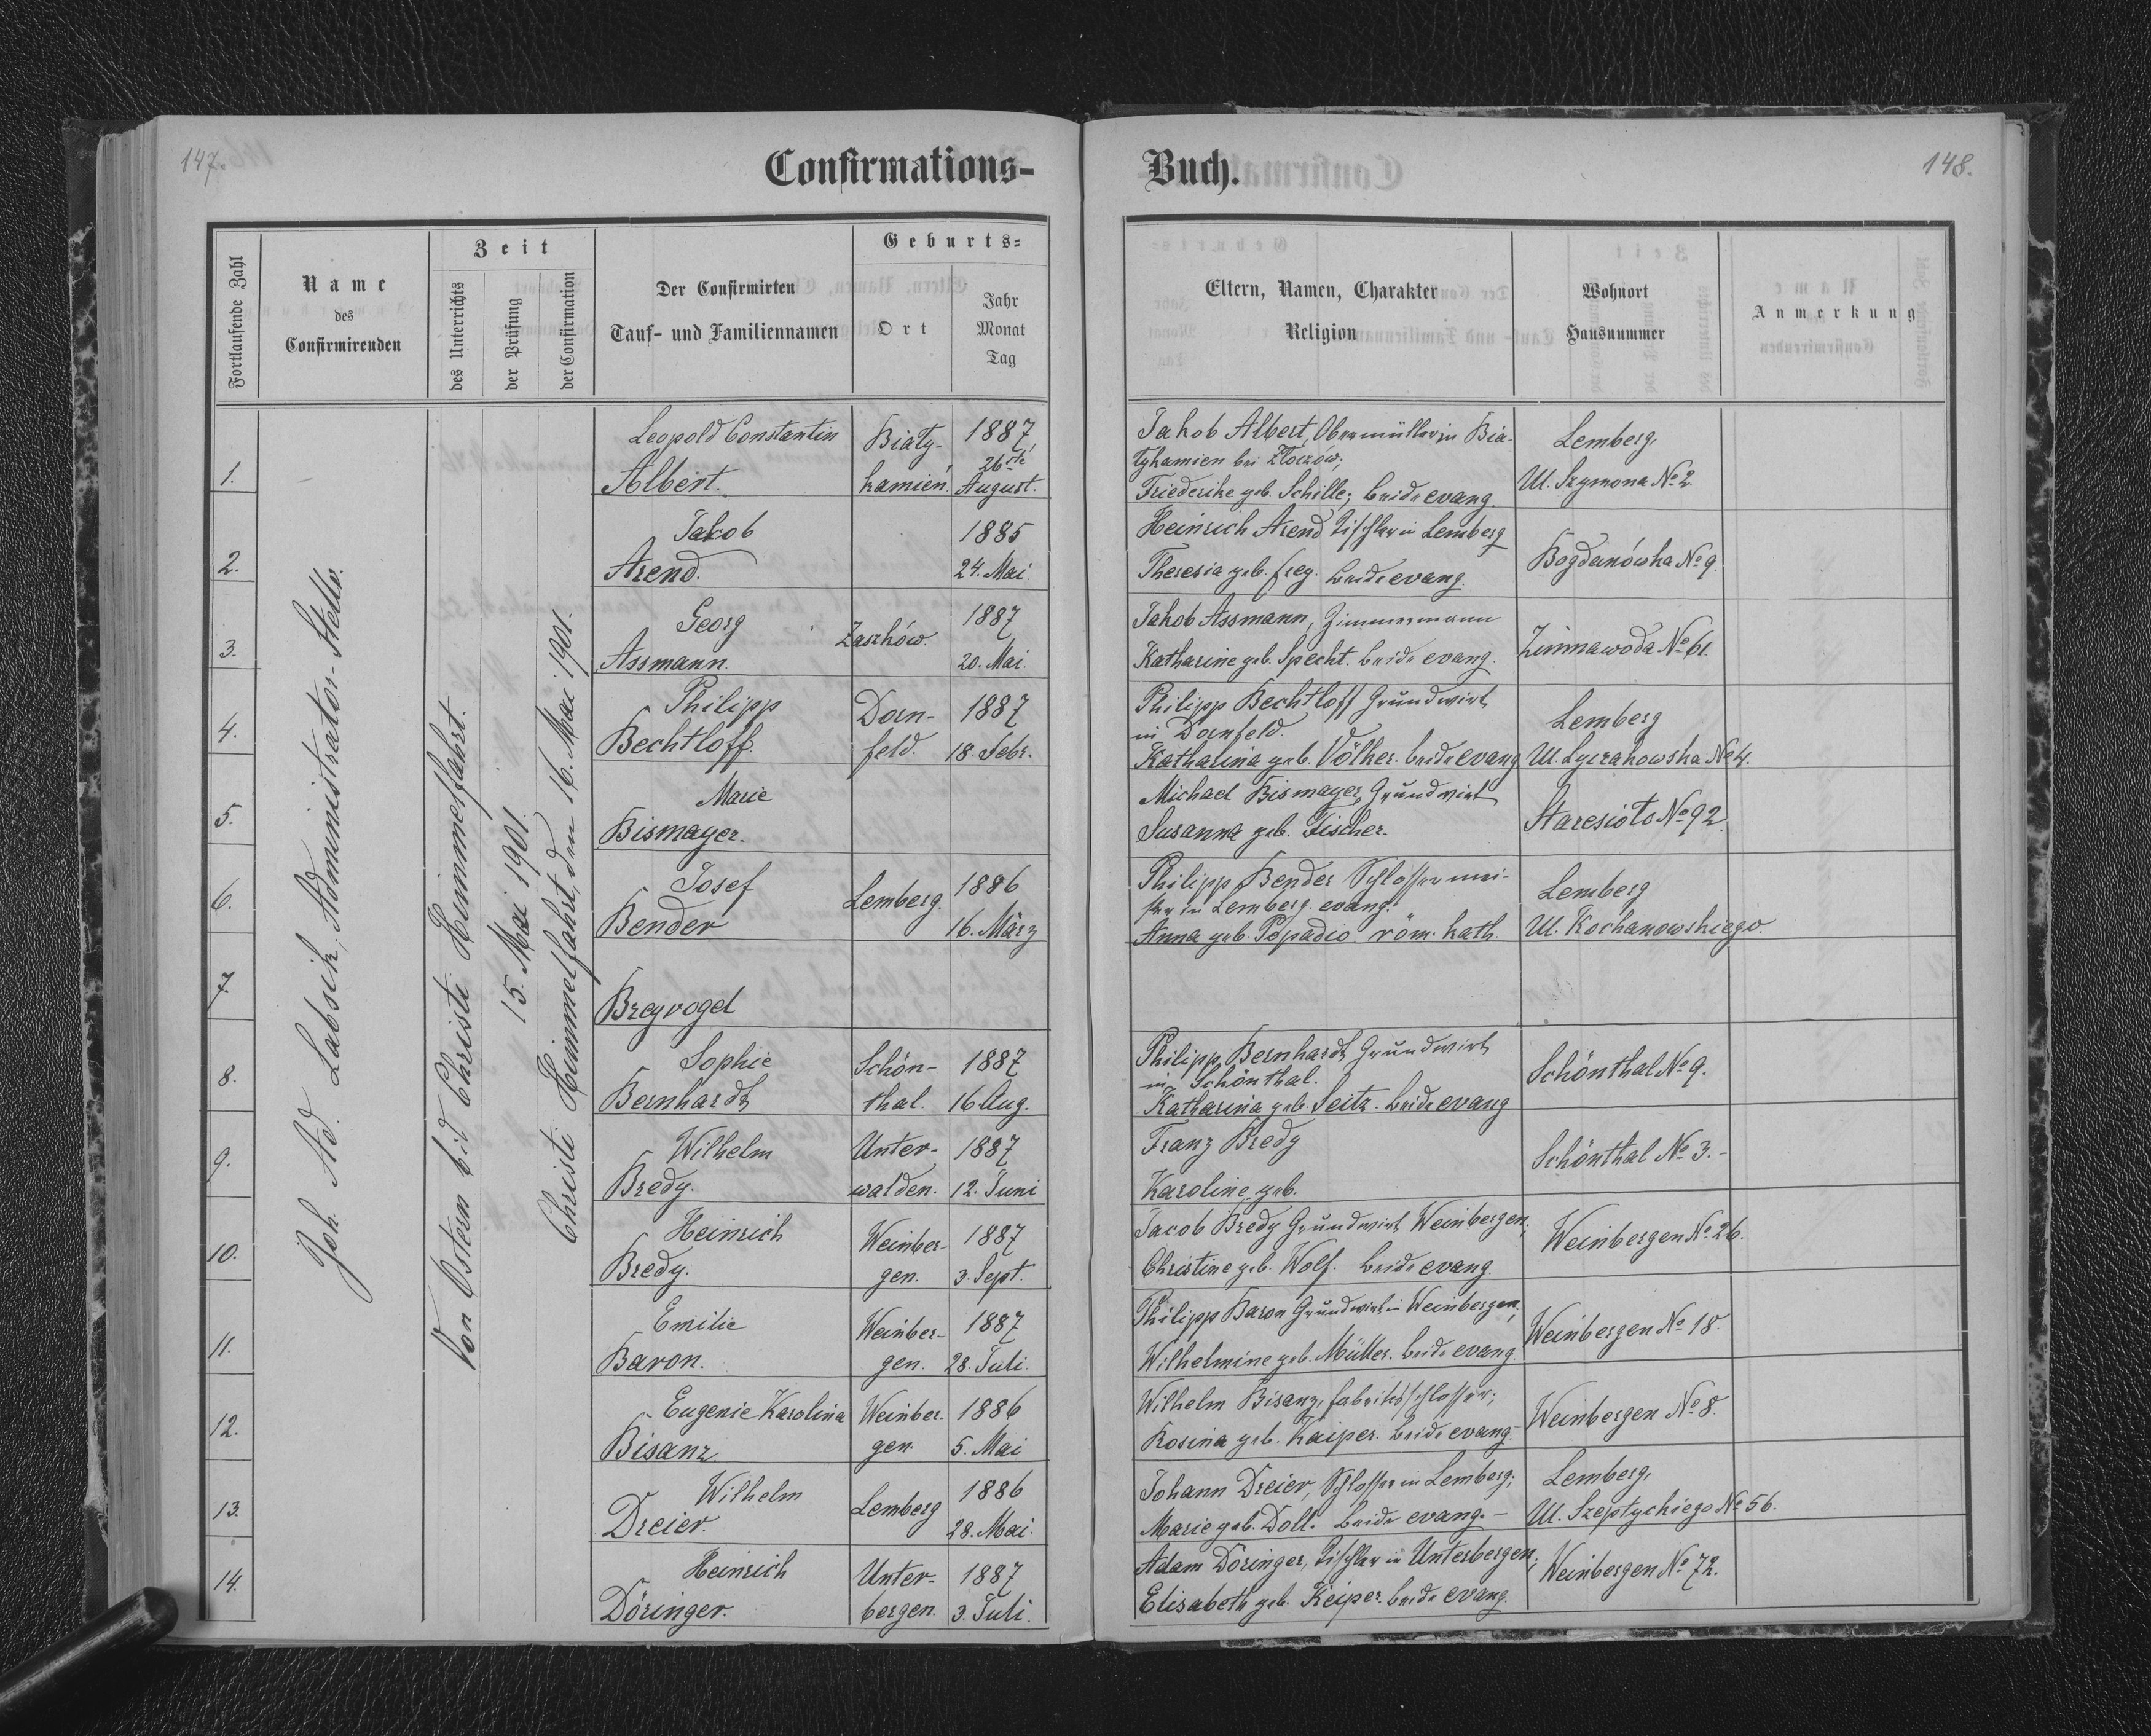 147.
Confirmations-
Fortlaufende Zahl
Name
des
Confirmirenden
Zeit
des Unterrichts
der Prüfung
der Confirmation
Der Confirmirten
Tauf- und Familiennamen
Geburts-
Ort
Jahr
Monat
Tag
Joh. Ad. Labsik, Administrator-Stellv.
Von Ostern bis Christi Himmelfahrt.
15. Mai 1901.
Christi Himmelfahrt, den 16. Mai 1901.
1.
Leopold Constantin
Albert.
Biały-
kamień.
1887,
26ste
August.
2.
Jakob
Arend.
1885
24. Mai
3.
Georg
Assmann.
Zaszków.
1887
20. Mai.
4.
Philipp
Bechtloff.
Dorn-
feld.
1887
18. Febr.
5.
Marie
Bismayer.
6.
Josef
Bender
Lemberg.
1886
16. März
7.
Breyvogel
8.
Sophie
Bernhardt
Schön-
thal.
1887
16 Aug.
9.
Wilhelm
Bredy.
Unter-
walden.
1887
12. Juni
10.
Heinrich
Bredy.
Weinber-
gen.
1887
3. Sept.
11.
Emilie
Baron.
Weinber-
gen.
1887
28. Juli.
12.
Eugenie Karolina
Bisanz.
Weinber-
gen.
1886
5. Mai
13.
Wilhelm
Dreier.
Lemberg
1886
28. Mai.
14.
Heinrich
Döringer.
Unter-
bergen.
1887
3. Juli.
148.
Buch.
Eltern, Namen, Charakter
Religion
Wohnort
Hausnummer
Anmerkung
Jakob Albert, Obermüller in Bia-
łykamien bei Złoczów;
Friederike geb. Schille; beide evang.
Lemberg,
Ul. Szymona No 2.
Heinrich Arend Tischler in Lemberg
Theresia geb. Frey. beide evang.
Bogdanówka No 9.
Jakob Assmann, Zimmermann
Katharine geb. Specht. beide evang.
Zimnawoda No 61.
Philipp Bechtloff Grundwirt
in Dornfeld.
Katharina geb. Völker. beide evang
Lemberg
Ul. Lyczakowska No 4.
Michael Bismayer, Grundwirt
Susanna geb. Fischer.
Staresioło No 92.
Philipp Bender Schlossermei-
ster in Lemberg. evang.
Anna geb. Popadio. röm. kath.
Lemberg
Ul. Kochanowskiego.
Philipp Bernhardt Grundwirt
in Schönthal.
Katharina geb. Seitz. beide evang
Schönthal No 9.
Franz Bredy
Karoline geb.
Schönthal No 3. -
Jacob Bredy Grundwirt Weinbergen,
Christine geb. Wolf. beide evang.
Weinbergen No 26.
Philipp Baron Grundwirt in Weinbergen,
Wilhelmine geb. Müller. beide evang.
Weinbergen No 18.
Wilhelm Bisanz, Fabriksschlosser;
Rosina geb. Kaiper. beide evang.
Weinbergen No 8.
Johann Dreier, Schlosser in Lemberg;
Marie geb. Doll. beide evang. -
Lemberg,
Ul. Szeptyckiego No 56.
Adam Döringer, Tischler in Unterbergen;
Elisabeth geb. Keiper. beide evang.
Weinbergen No 72.